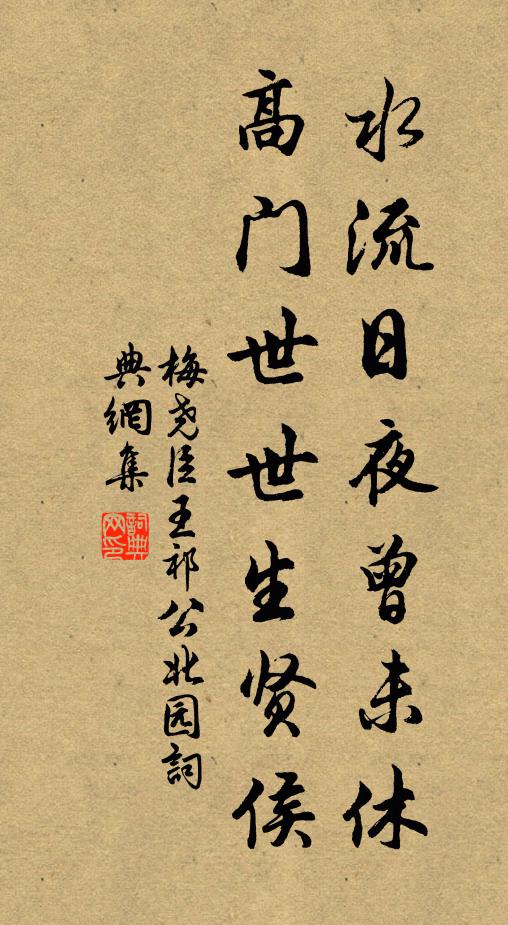 水流日夜曾未休
高门世世生贤侯
梅尧臣王祁公北园詞
典網集
詞典
网印